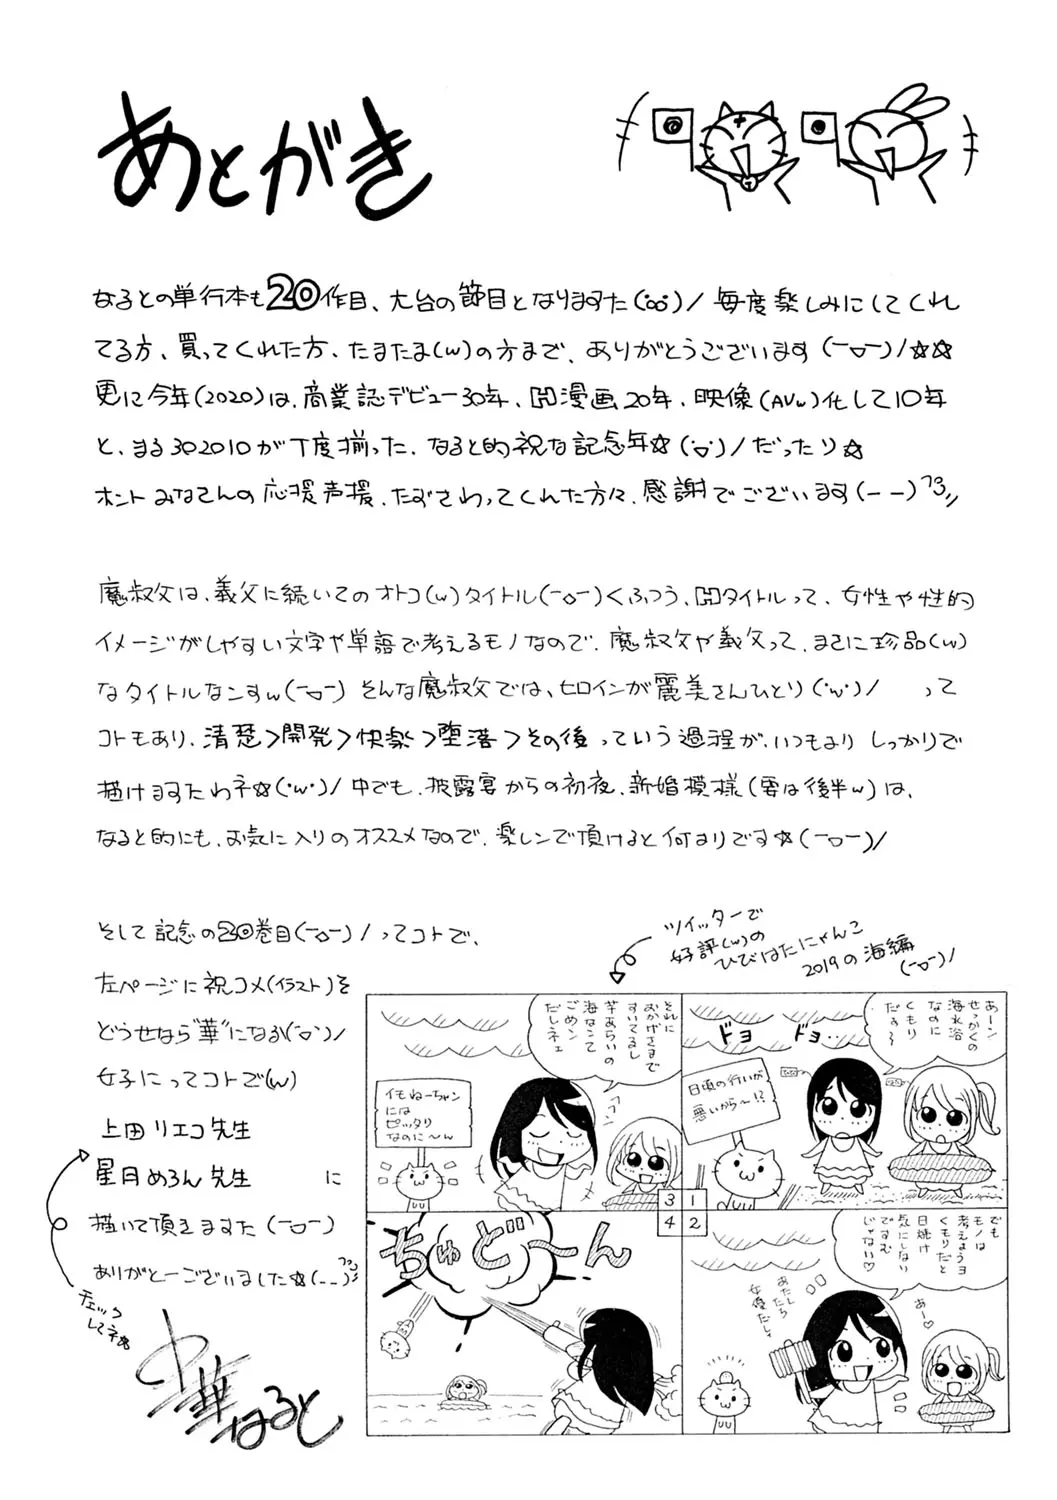 あとがき
なるとの単行本も20作目、大台の節目となりますた(°°)/ 毎度楽しみにしてくれ
てる方、買ってくれた方、たまたま(w)の方まで、ありがとうございます(￣▽￣)/☆☆
更に今年(2020)は、商業誌デビュー30年、H漫画20年、映像(AVw)化して10年
と、まる302010が丁度揃った、なると的祝な記念年☆(˙▽˙)/だったり☆
ホントみなさんの応援声援、たずさわってくれた方々、感謝でございます(ーー)フコ〃
魔叔父は、義父に続いてのオトコ(w)タイトル(￣▽￣)くふつう、Hタイトルって、女性や性的
イメージがしやすい文字や単語で考えるモノなので、魔叔父や義父って、まさに珍品(w)
なタイトルなんすw(￣▽￣) そんな魔叔父では、ヒロインが麗美さんひとり(˙w˙)/ って
コトもあり、清楚>開発>快楽>堕落>その後 っていう過程が、いつもより しっかりで
描けますたわネ☆(˙w˙)/ 中でも、披露宴からの初夜、新婚模様(要は後半w)は、
なると的にも、お気に入りのオススメなので、楽しンで頂けると何よりです☆(￣▽￣)/
そして記念の20巻目(￣▽￣)/ってコトで、
左ページに祝コメ(イラスト)を
どうせなら“華”になる(˙▽˙)/
女子にってコトで(w)
上田リエコ先生
星月めろん先生 に
描いて頂きますた(￣▽￣)
ありがとーございました☆(__)フコ〃
チェック
してネ☆
中華なると
ツイッターで
好評(w)の
ひびはたにゃんこ
2019の海編
(￣▽￣)/
あーン
せっかくの
海水浴
なのに
くもり
だす〜
ドヨ ドヨ‥
日頃の行いが
悪いから〜!?
でも
モノは
考えようヨ
くもりだと
日焼け
気にしない
ですむ
じゃない♡
あー♡
あたしたち
女優だしッ
それに
おかげさまで
すいてるし
芋あらいの
海なんて
ごめン
だしネェ
フフン
イモねーちゃン
には
ピッタリ
なのに〜ん
ちゅど〜ん
3 1
4 2